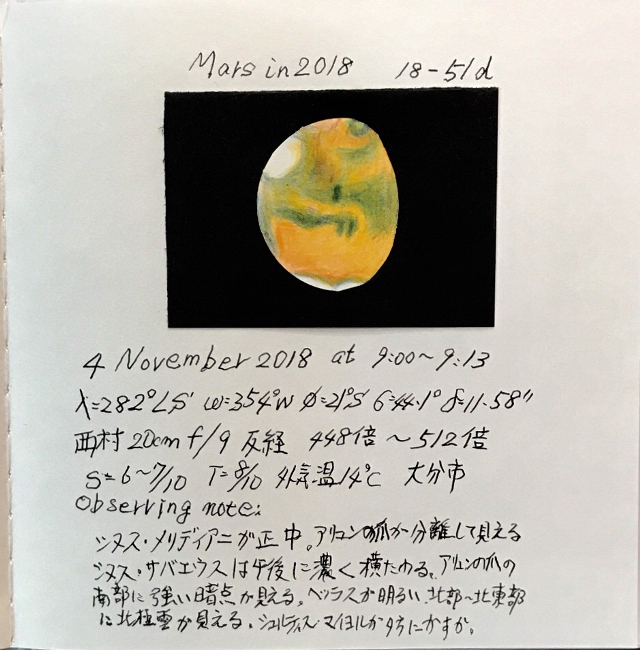 Mars in 2018 18-51d
4 November 2018 at 9:00~9:13
λ=282°LS ω=354°W φ=21°S 6=44.1° δ=11.58"
西村 20cm f/9 反経 448倍 ~ 512倍
S=6~7/10 T=8/10 外気温14°C 大分市
Observing note:
シヌス・メリディアニが正中。アリュンの爪が分離して見える
シヌス・サバエウスは午後に濃く横たわる。アリュンの爪の
南部に強い暗点が見える。ヘラスが明るい。北部~北東部
に北極雲が見える。シュルティス・マイヨルが夕方にかすか。